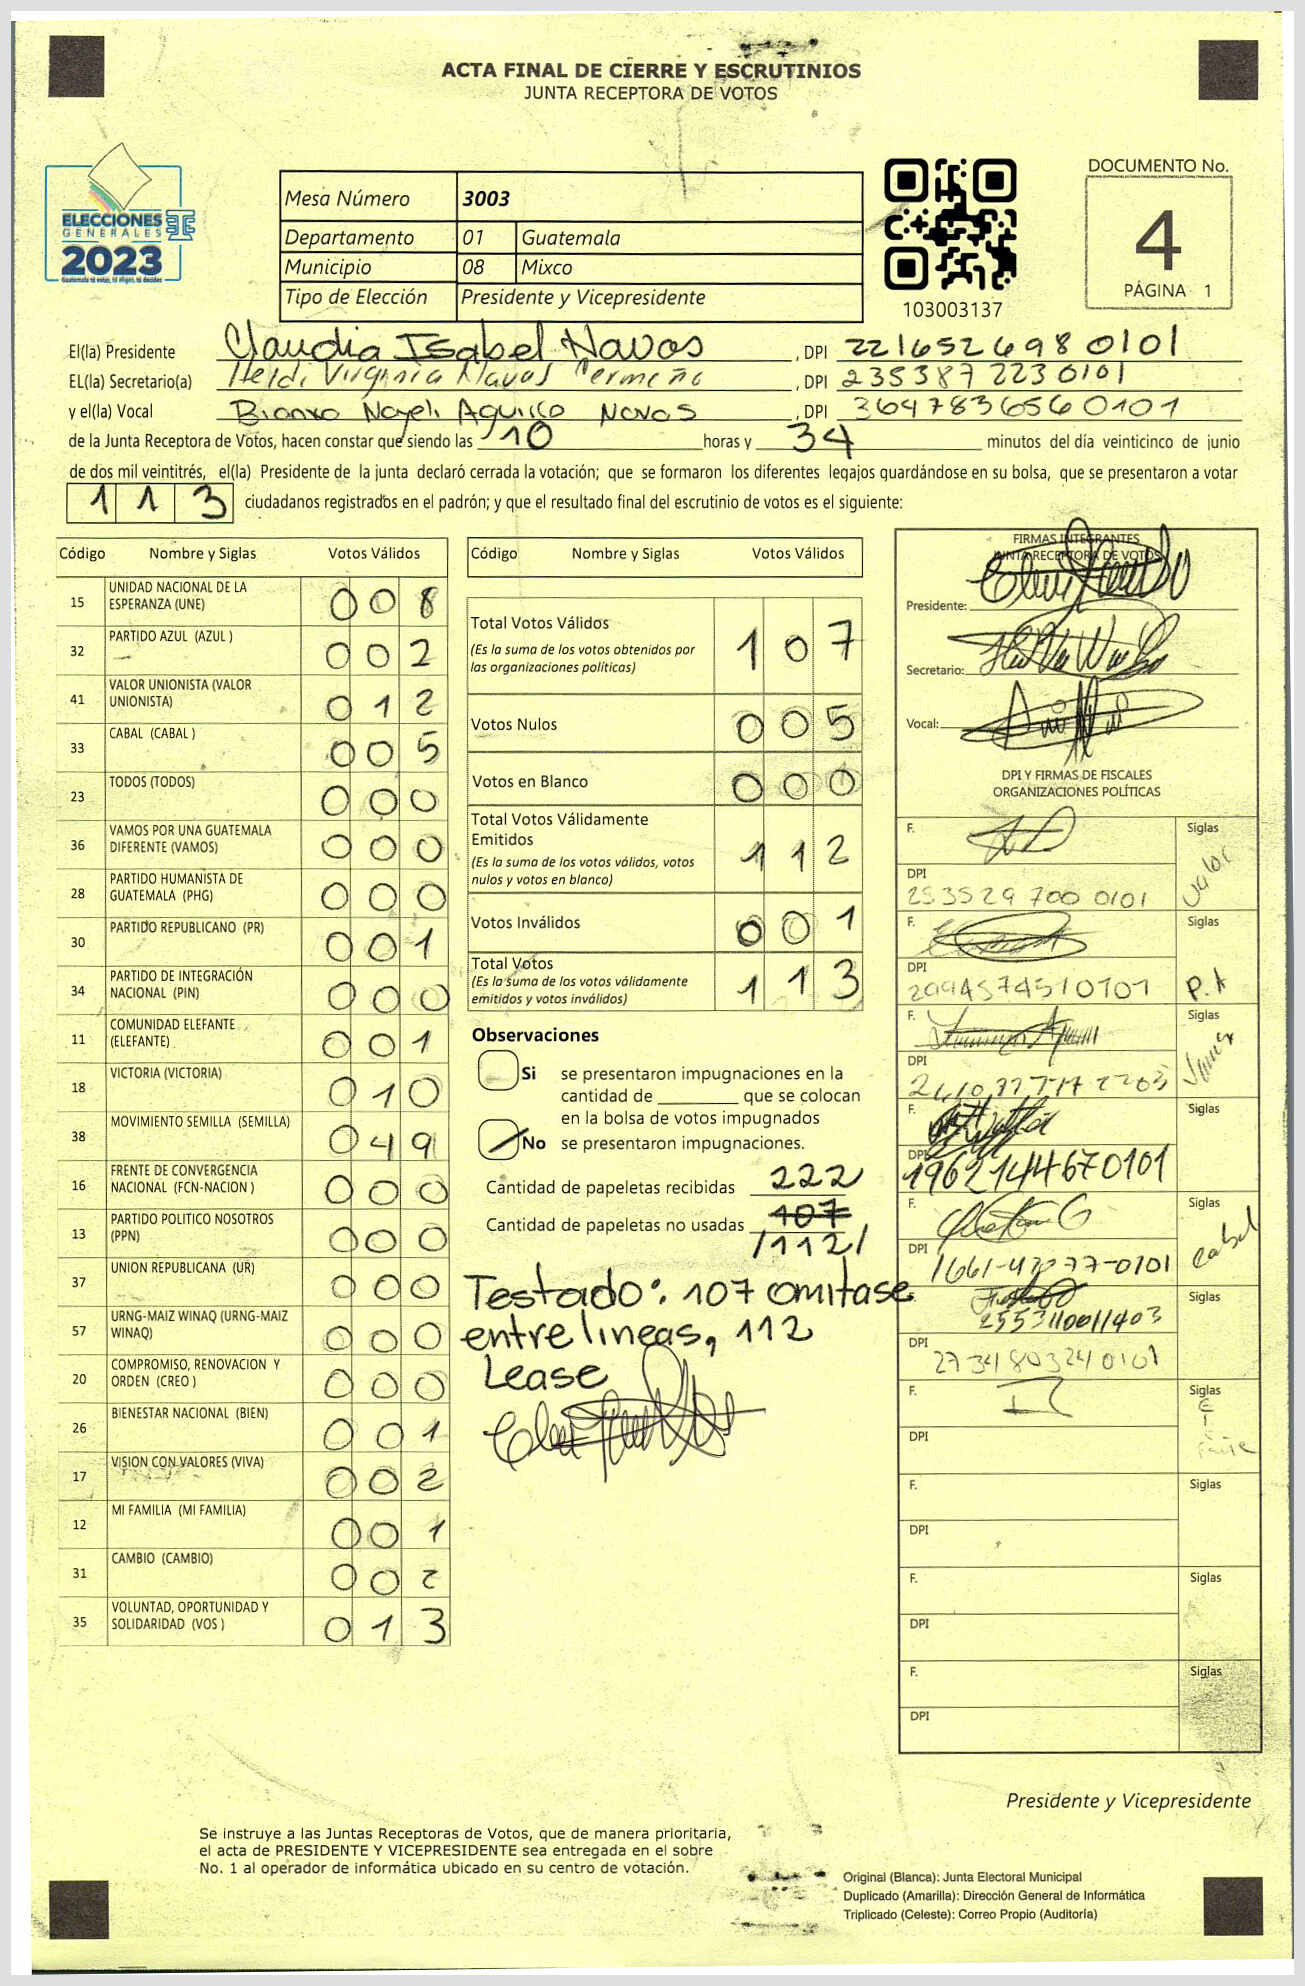 ACTA FINAL DE CIERRE Y ESCRUTINIOS
JUNTA RECEPTORA DE VOTOS
ELECCIONES
GENERALES
2023
Guatemala tú votas, tú eliges, tú decides
Mesa Número 3003
Departamento 01 Guatemala
Municipio 08 Mixco
Tipo de Elección Presidente y Vicepresidente
103003137
DOCUMENTO No.
4
PÁGINA 1
El(la) Presidente Claudia Isabel Navas , DPI 2216526980101
EL(la) Secretario(a) Heidi Virginia Navas Cermeño , DPI 2353872230101
y el(la) Vocal Navas , DPI 3647836560101
de la Junta Receptora de Votos, hacen constar que siendo las 10 horas y 34 minutos del día veinticinco de junio
de dos mil veintitrés, el(la) Presidente de la junta declaró cerrada la votación; que se formaron los diferentes legajos guardándose en su bolsa, que se presentaron a votar
113 ciudadanos registrados en el padrón; y que el resultado final del escrutinio de votos es el siguiente:
Código Nombre y Siglas Votos Válidos
15 UNIDAD NACIONAL DE LA ESPERANZA (UNE) 008
32 PARTIDO AZUL (AZUL ) 002
41 VALOR UNIONISTA (VALOR UNIONISTA) 012
33 CABAL (CABAL ) 005
23 TODOS (TODOS) 000
36 VAMOS POR UNA GUATEMALA DIFERENTE (VAMOS) 000
28 PARTIDO HUMANISTA DE GUATEMALA (PHG) 000
30 PARTIDO REPUBLICANO (PR) 001
34 PARTIDO DE INTEGRACIÓN NACIONAL (PIN) 000
11 COMUNIDAD ELEFANTE (ELEFANTE) 001
18 VICTORIA (VICTORIA) 010
38 MOVIMIENTO SEMILLA (SEMILLA) 049
16 FRENTE DE CONVERGENCIA NACIONAL (FCN-NACION ) 000
13 PARTIDO POLITICO NOSOTROS (PPN) 000
37 UNION REPUBLICANA (UR) 000
57 URNG-MAIZ WINAQ (URNG-MAIZ WINAQ) 000
20 COMPROMISO, RENOVACION Y ORDEN (CREO ) 000
26 BIENESTAR NACIONAL (BIEN) 001
17 VISION CON VALORES (VIVA) 002
12 MI FAMILIA (MI FAMILIA) 001
31 CAMBIO (CAMBIO) 002
35 VOLUNTAD, OPORTUNIDAD Y SOLIDARIDAD (VOS ) 013
Código Nombre y Siglas Votos Válidos
Total Votos Válidos 107
(Es la suma de los votos obtenidos por
las organizaciones políticas)
Votos Nulos 005
Votos en Blanco 000
Total Votos Válidamente
Emitidos 112
(Es la suma de los votos válidos, votos
nulos y votos en blanco)
Votos Inválidos 001
Total Votos 113
(Es la suma de los votos válidamente
emitidos y votos inválidos)
Observaciones
Si se presentaron impugnaciones en la
cantidad de ________ que se colocan
en la bolsa de votos impugnados
No se presentaron impugnaciones.
Cantidad de papeletas recibidas 222
Cantidad de papeletas no usadas 107
/112/
Testado: 107 omitase
entre lineas, 112
Lease
FIRMAS INTEGRANTES
JUNTA RECEPTORA DE VOTOS
Presidente:
Secretario:
Vocal:
DPI Y FIRMAS DE FISCALES
ORGANIZACIONES POLÍTICAS
F. Siglas Valor
DPI 253529 700 0101
F. Siglas P.A
DPI 2994574510101
F. Siglas
DPI
F. Siglas
DPI 1962144670101
F. Siglas Cabal
DPI
F. Siglas
2553110011403
DPI 2734803240101
F. Siglas
DPI
F. Siglas
DPI
F. Siglas
DPI
F. Siglas
DPI
Presidente y Vicepresidente
Se instruye a las Juntas Receptoras de Votos, que de manera prioritaria,
el acta de PRESIDENTE Y VICEPRESIDENTE sea entregada en el sobre
No. 1 al operador de informática ubicado en su centro de votación.
Original (Blanca): Junta Electoral Municipal
Duplicado (Amarilla): Dirección General de Informática
Triplicado (Celeste): Correo Propio (Auditoría)